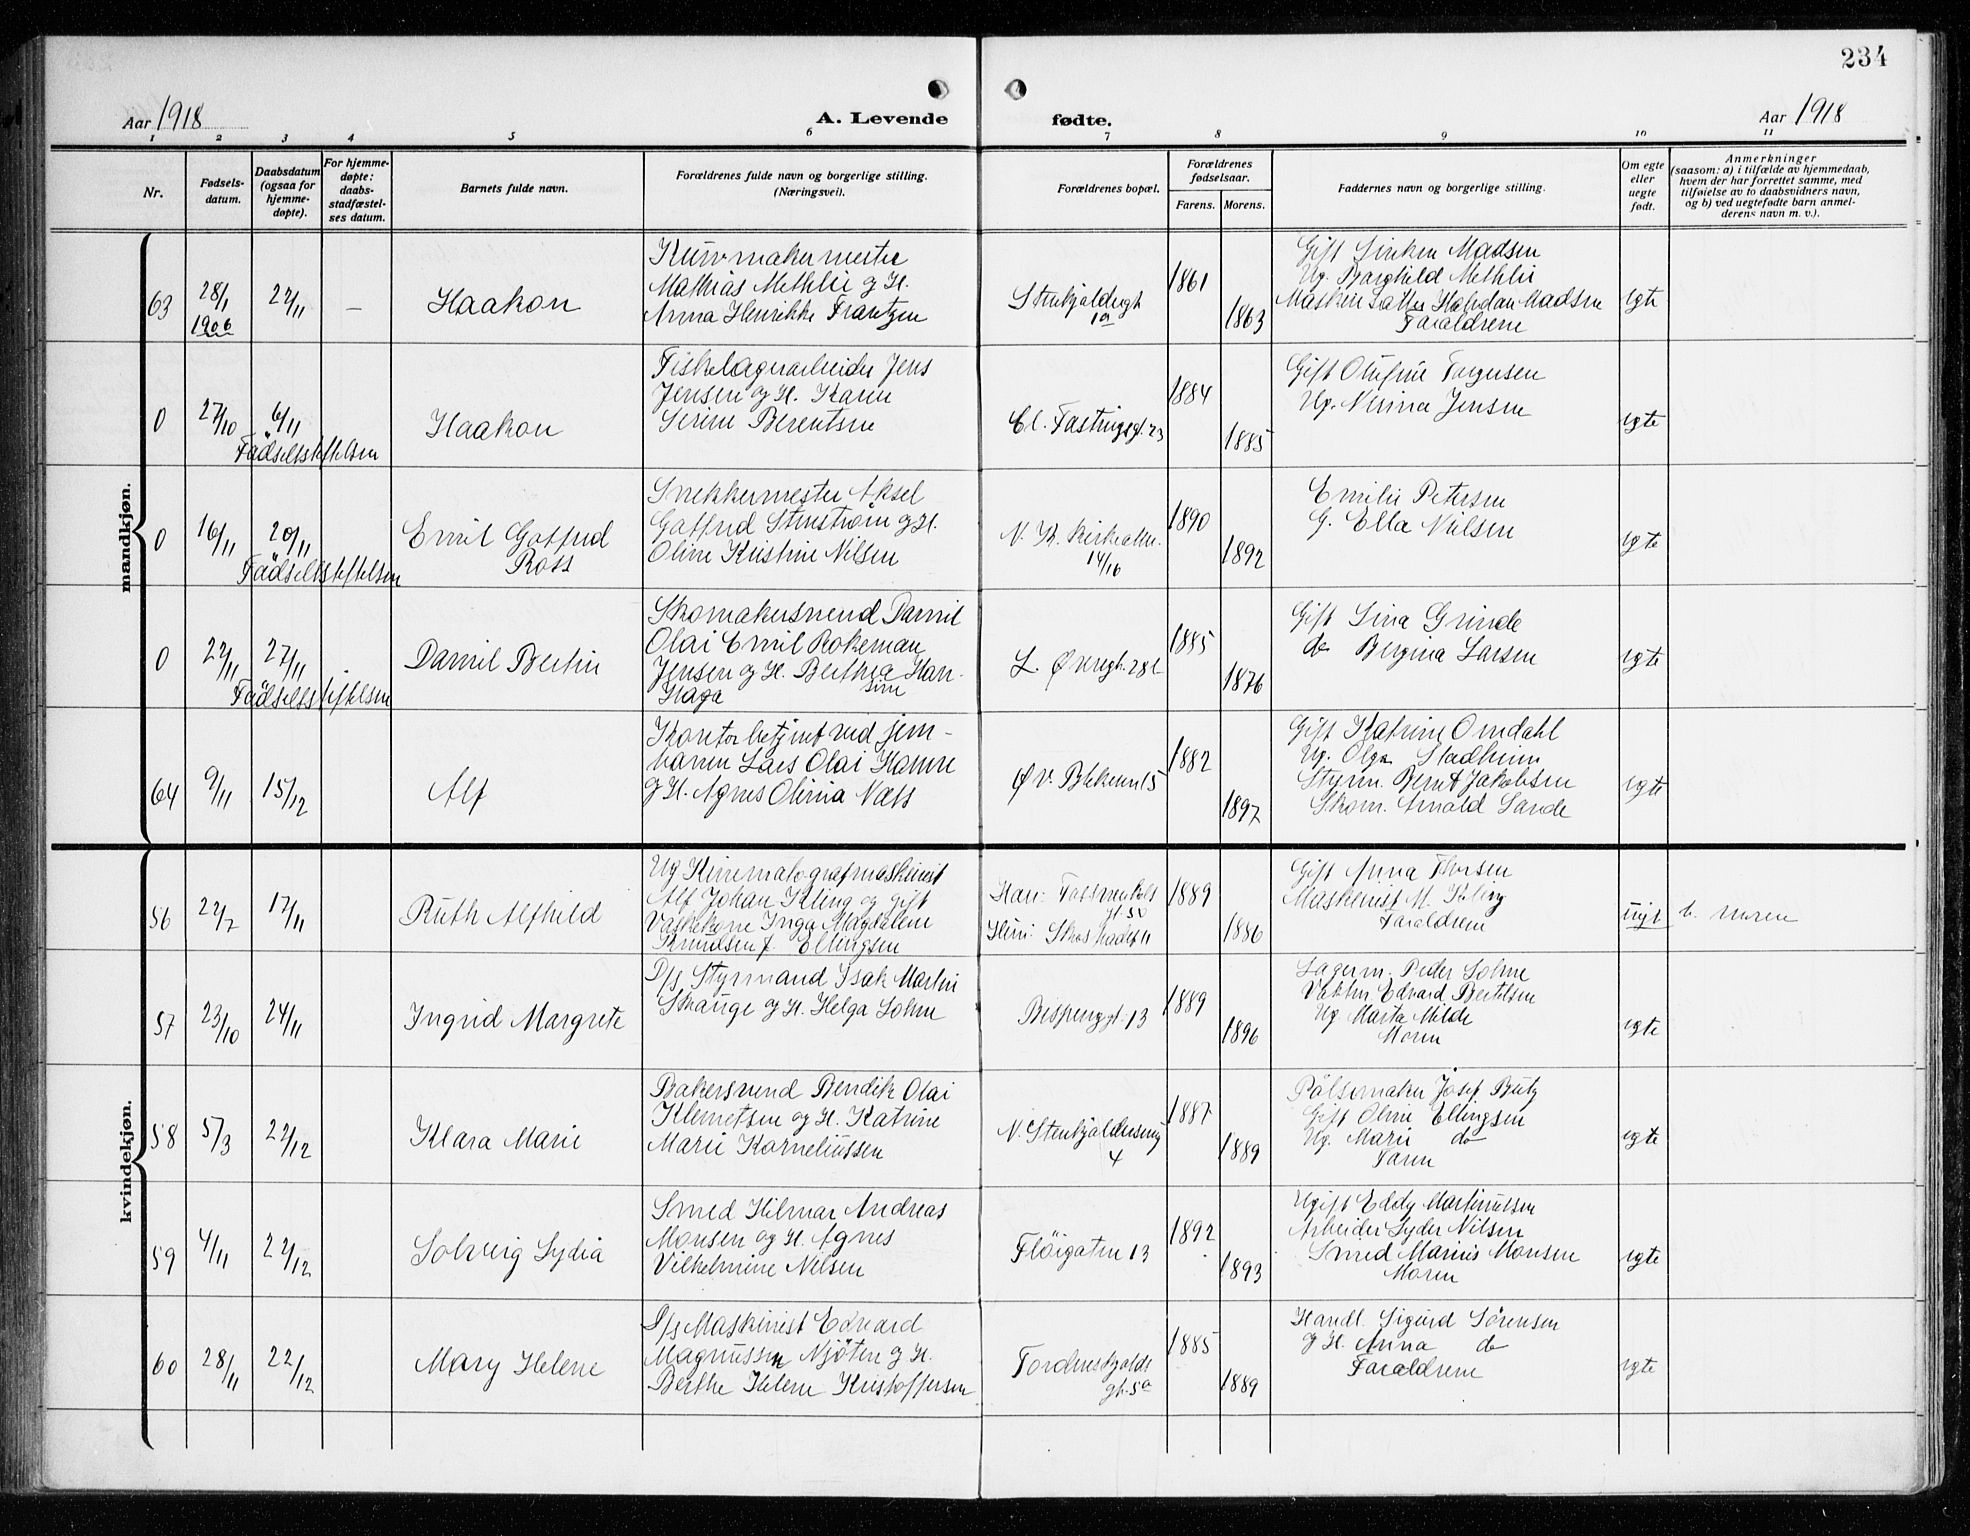 234
Aar 1918
A. Levende
fødte.
Aar 1918
1 2 3 4 5 6 7 8 9 10 11
Nr.
Fødsels-
datum.
Daabsdatum
(ogsaa for
hjemme-
døpte).
For hjemme-
døpte:
daabs-
stadfæstel-
ses datum.
Barnets fulde navn.
Forældrenes fulde navn og borgerlige stilling.
(Næringsvei).
Forældrenes bopæl.
Forældrenes
fødselsaar.
Farens. Morens.
Faddernes navn og borgerlige stilling.
Om egte
eller
uegte
født.
Anmerkninger
(saasom: a) i tilfælde av hjemmedaab,
hvem der har forrettet samme, med
tilføielse av to daabsvidners navn,
og b) ved uegtefødte barn anmel-
derens navn m. v.).
mandkjøn.
63
28/1
1906
22/11
—
Haakon
Kurvmakermester
Mathias Methlie og H.
Anna Henrikke Frantzen
Stenkjeldergt
1a
1861
1863
Gift Siriken Madsen
Ug. Borghild Methlie
Maskin Halfdan Madsen
Forældrene
egte
0
27/10
6/11
Fødselsstiftelsen
Haakon
Fiskelagerarbeider Jens
Jensen og H. Karen
Serine Berentsen
Cl. Fastingsgt. 23
1884
1885
Gift Olufine Torgersen
Ug. Nerina Jensen
egte
0
16/11
20/11
Fødselsstiftelsen
Emil Gotfred
Ross
Snekkermester Aksel
Gotfred Stenstrøm og H.
Oline Kristine Nilsen
N. K. Kirkealm.
14/16
1890
1892
Emilie Petersen
G. Ella Nilsen
egte
0
22/11
27/11
Fødselsstiftelsen
Daniel Bertin
Skomakersvend Daniel
Olai Emil Rokeman
Jensen og H. Berthea Han-
sine
Haga
L. Øvregt. 28 b
1885
1876
Gift Sina Grinde
do Bergina Larsen
egte
64
9/11
15/12
Alf
Kontorbetjent ved jern-
banen Lars Olai Hamre
og H. Agnes Olivia Næss
Øv. Blekevei 15
1882
1897
Gift Katrine Omdahl
Ug. Olga Stadheim
Styrm. Bernt Jakobsen
Skom. Arnold Sande
egte
kvindekjøn.
56
22/7
17/11
Ruth Alfhild
Ug Kinematografmaskinist
Alf Johan Kling og gift
Vaskekone Inga Magdalene
Knudsen f. Ellingsen
Han:
gt. 50
Hun:
1889
1886
Gift Anna Thorsen
Maskinist M. Kling
Forældrene
uegt
v. moren
57
23/10
24/11
Ingrid Margrete
D/s Styrmand Isak Martin
Skauge og H. Helga Solem
Bispenggt. 13
1889
1896
Lagerm. Peder Solem
Vaktm Edvard Bertelsen
Ug Marta Milde
Moren
egte
58
5/3
22/12
Klara Marie
Bakersvend Bendik Olai
Klemetsen og H. Katrine
Marie Korneliussen
N. Stenkjeldersmug
4
1887
1889
Pølsemaker Josef Butz
Gift Oline Ellingsen
Ug. Marie do
Faren
egte
59
4/11
22/12
Solveig Lydia
Smed Hilmar Andreas
Monsen og H. Agnes
Vilhelmine Nilsen
Fløigaten 13
1892
1893
Ugift Eddy Martinussen
Arbeider Syder Nilsen
Smed Marius Monsen
Moren
egte
60
28/11
22/12
Mary Helene
D/s Maskinist Edvard
Magnussen Njøten og H.
Berthe Helene Kristoffersen
Tordenskjolds
gt. 5a
1885
1889
Handl. Sigurd Sørensen
og H. Anna do
Forældrene
egte